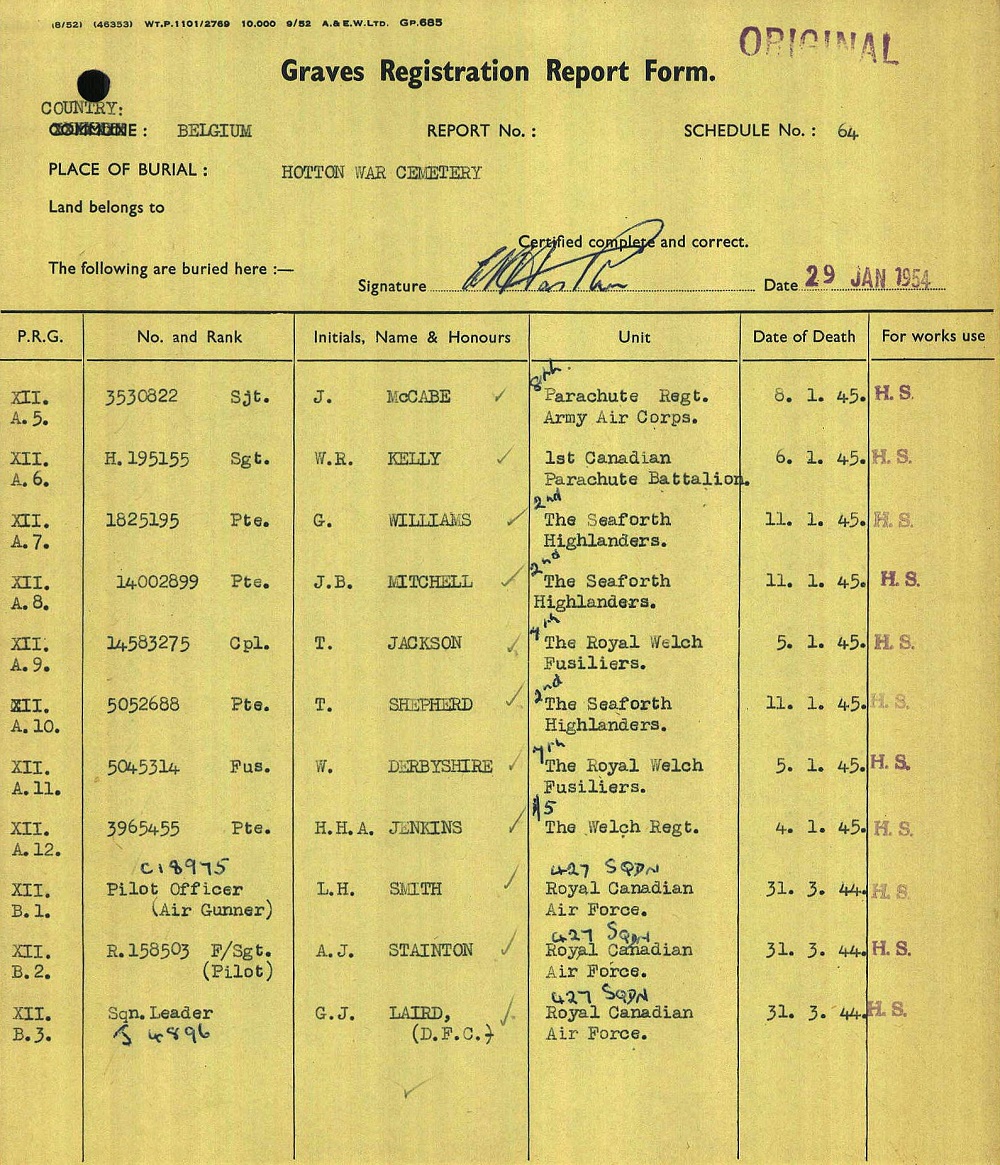 (8/52) (46353) WT.P.1101/2769 10.000 9/52 A.& E.W.LTD. GP.685
ORIGINAL
Graves Registration Report Form.
COUNTRY:
BELGIUM REPORT No. : SCHEDULE No. : 64
PLACE OF BURIAL : HOTTON WAR CEMETERY
Land belongs to
Certified complete and correct.
The following are buried here :—
Signature Date 29 JAN 1954
P.R.G. No. and Rank Initials, Name & Honours Unit Date of Death For works use
8th.
XII. 3530822 Sjt. J. McCABE ✓ Parachute Regt. 8. 1. 45. H.S.
A.5. Army Air Corps.
XII. H.195155 Sgt. W.R. KELLY ✓ 1st Canadian 6. 1. 45. H.S.
A.6. Parachute Battalion.
2nd
XII. 1825195 Pte. G. WILLIAMS ✓ The Seaforth 11. 1. 45. H.S.
A.7. Highlanders.
2nd
XII. 14002899 Pte. J.B. MITCHELL ✓ The Seaforth 11. 1. 45. H.S.
A.8. Highlanders.
7th
XII. 14583275 Cpl. T. JACKSON ✓ The Royal Welch 5. 1. 45. H.S.
A.9. Fusiliers.
2nd
XII. 5052688 Pte. T. SHEPHERD ✓ The Seaforth 11. 1. 45. H.S.
A.10. Highlanders.
7th
XII. 5045314 Fus. W. DERBYSHIRE ✓ The Royal Welch 5. 1. 45. H.S.
A.11. Fusiliers.
1/5
XII. 3965455 Pte. H.H.A. JENKINS ✓ The Welch Regt. 4. 1. 45. H.S.
A.12.
C18975 427 SQDN
XII. Pilot Officer L.H. SMITH ✓ Royal Canadian 31. 3. 44. H.S.
B.1. (Air Gunner) Air Force.
427 SQDN
XII. R.158503 F/Sgt. A.J. STAINTON ✓ Royal Canadian 31. 3. 44. H.S.
B.2. (Pilot) Air Force.
427 SQDN
XII. Sqn.Leader G.J. LAIRD, ✓ Royal Canadian 31. 3. 44. H.S.
B.3. J 4896 (D.F.C.) Air Force.
✓